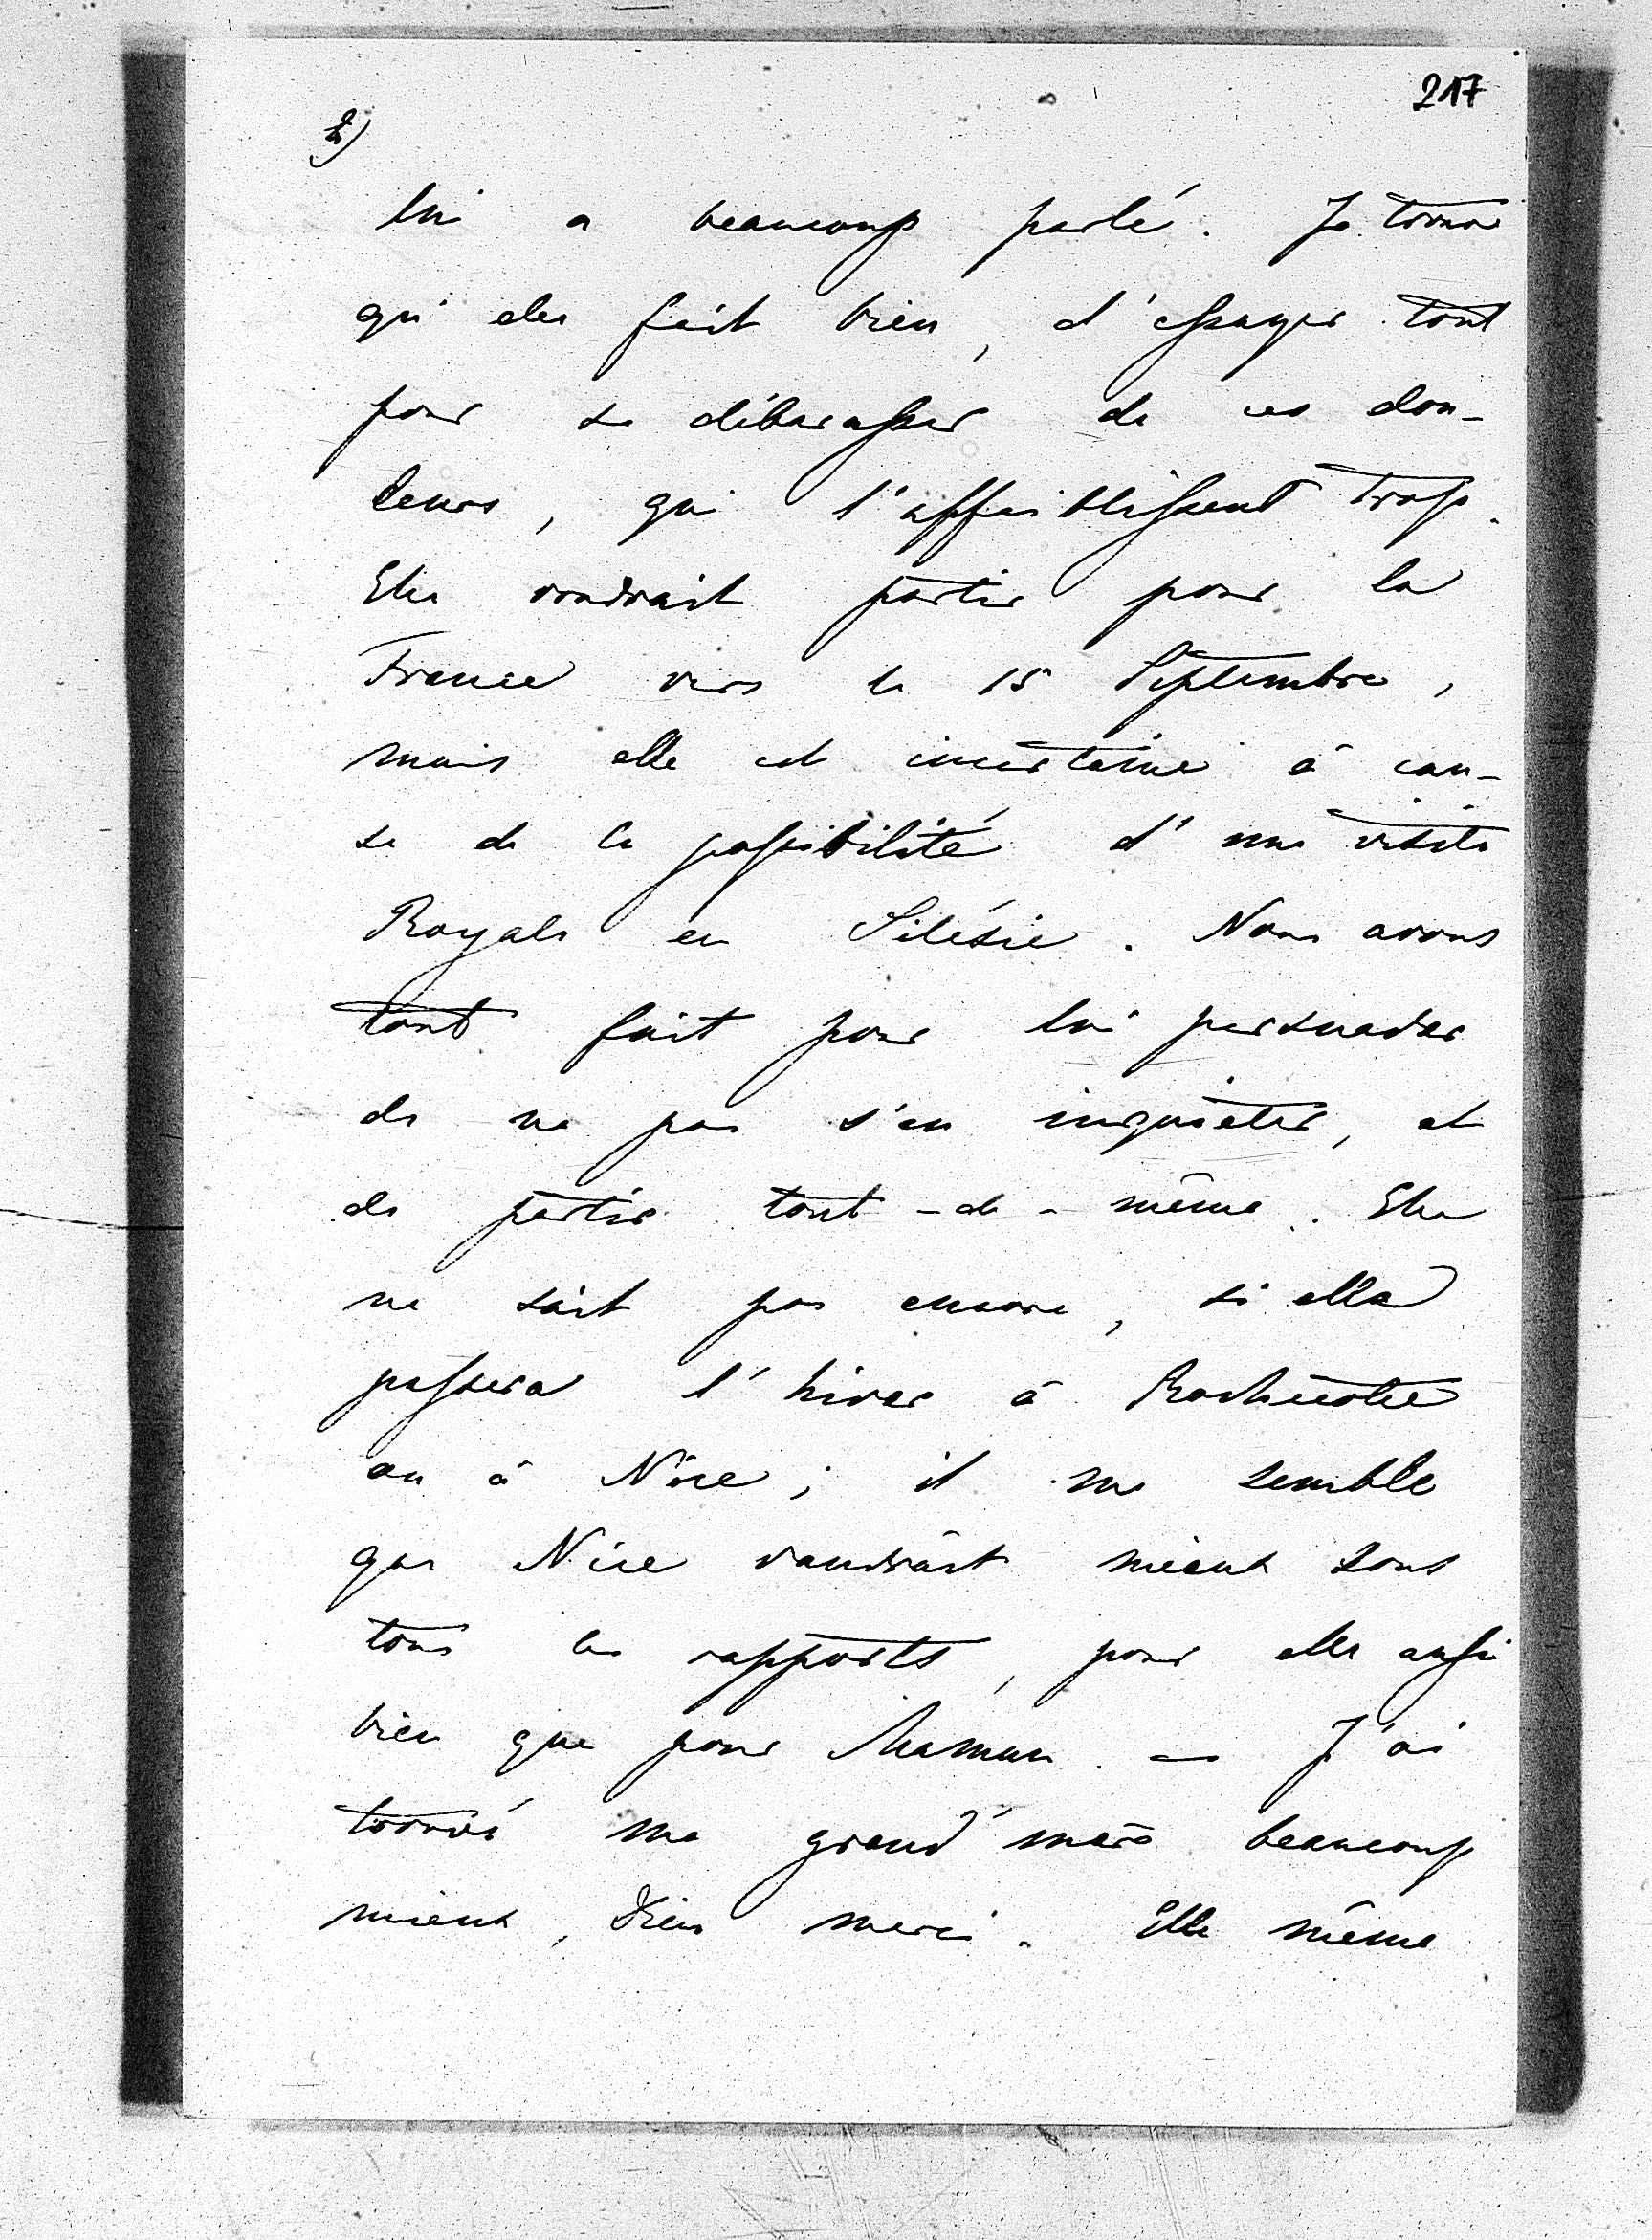 217
2)
lui a beaucoup parlé. Je trouve
qu'elle fait bien, d'essayer tout
pour se débarasser de ces dou-
leurs, qui l'affaiblissent trop.
Elle voudrait partir pour la
France vers le 15 Septembre,
mais elle est incertaine à cau-
se de la possibilité d'une visite
Royale en Silésie. Nous avons
tout fait pour lui persuader
de ne pas s'en inquiéter, et
de partir tout-de-même. Elle
ne sait pas encore, si elle
passera l'hiver à Rochecotte
ou à Nice; il me semble
que Nice vaudrait mieux sous
tous les rapports, pour elle aussi
bien que pour Maman. — J'ai
trouvé ma grand'mère beaucoup
mieux, Dieu merci. Elle même